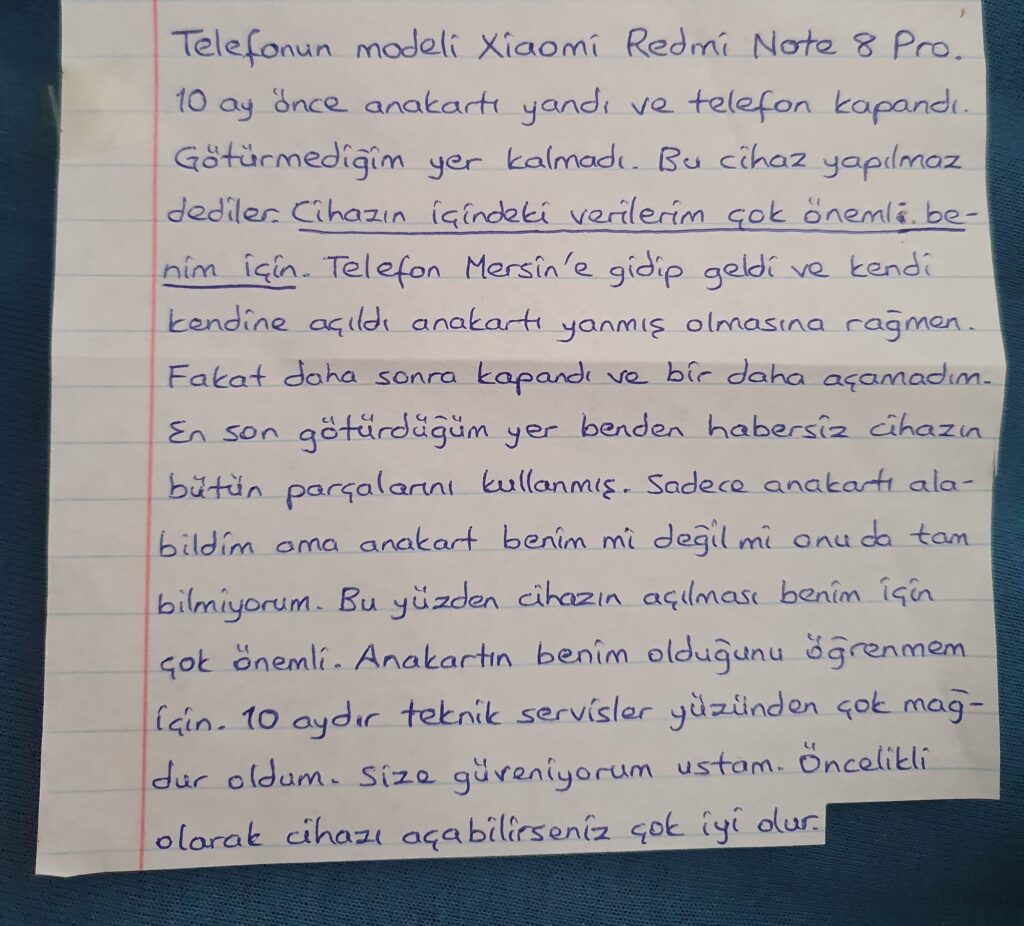 Telefonun modeli Xiaomi Redmi Note 8 Pro.
10 ay önce anakartı yandı ve telefon kapandı.
Götürmediğim yer kalmadı. Bu cihaz yapılmaz
dediler. Cihazın içindeki verilerim çok önemli. be-
nim için. Telefon Mersin'e gidip geldi ve kendi
kendine açıldı anakartı yanmış olmasına rağmen.
Fakat daha sonra kapandı ve bir daha açamadım.
En son götürdüğüm yer benden habersiz cihazın
bütün parçalarını kullanmış. Sadece anakartı ala-
bildim ama anakart benim mi değil mi onu da tam
bilmiyorum. Bu yüzden cihazın açılması benim için
çok önemli. Anakartın benim olduğunu öğrenmem
için. 10 aydır teknik servisler yüzünden çok mağ-
dur oldum. Size güveniyorum ustam. Öncelikli
olarak cihazı açabilirseniz çok iyi olur.